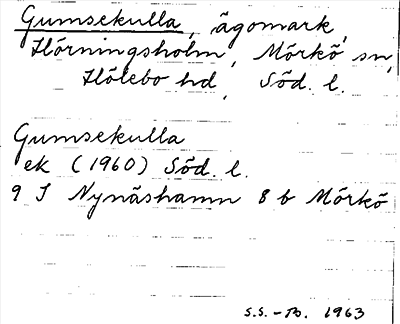 Gumsekulla, ägomark,
Hörningsholm, Mörkö sn,
Hölebo hd, Söd. l.
Gumsekulla
ek (1960) Söd. l.
9 I Nynäshamn 8 b Mörkö
S.S. - B. 1963